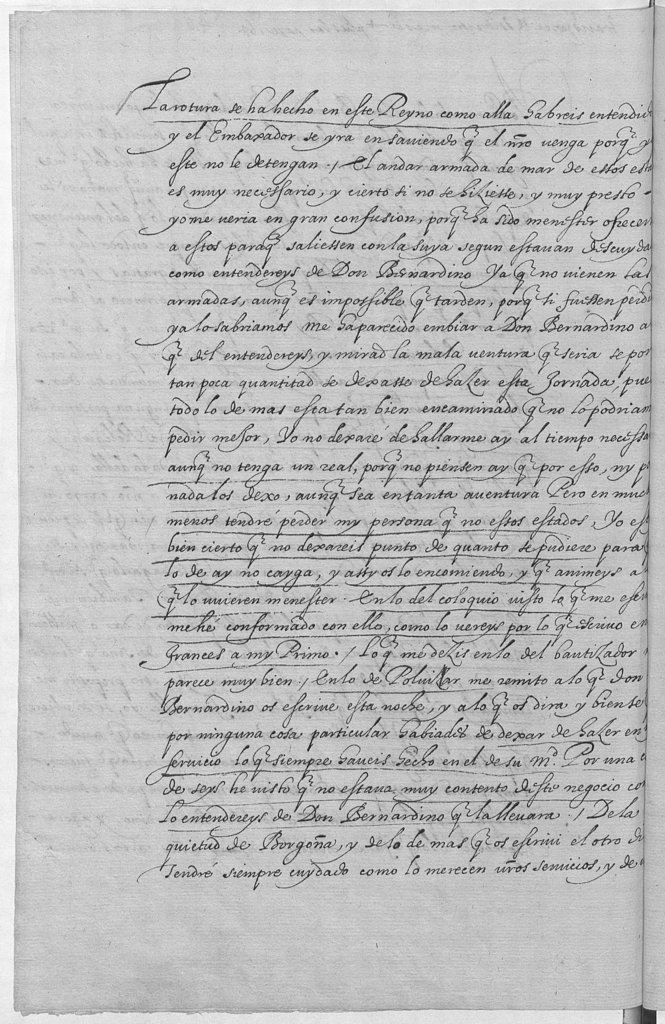 La rotura se ha hecho en este Reyno como alla habreis entendid
y el Embaxador se yra en saviendo q̃ el nr̃o venga porq̃ y
este no le detengan ./ El andar armada de mar de estos est
es muy necessario, y cierto si no se hiziesse, y muy presto
yo me veria en gran confusion, porq̃ ha sido menester ofrecer
a estos paraq̃ saliessen con la suya segun estavan descuyda
como entendereys de Don Bernardino Ya q̃ no vienen las
armadas, aunq̃ es impossible q̃ tarden, porq̃ si fuessen perdid
ya lo sabriamos me ha parecido embiar a Don Bernardino a
q̃ del entendereys, y mirad la mala ventura q̃ seria se por
tan poca quantidad se dexasse de hazer esta Jornada, pue
todo lo de mas esta tan bien encaminado q̃ no lo podriam
pedir mejor, Yo no dexaré de hallarme ay al tiempo necessa
aunq̃ no tenga un real, porq̃ no piensen ay q̃ por esso, ny p
nada los dexo, aunq̃ sea en tanta aventura Pero en muc
menos tendré perder my persona q̃ no estos estados, Yo es
bien cierto q̃ no dexareis punto de quanto se pudiere para
lo de ay no cayga, y assy os lo encomiendo, y q̃ animeys a
q̃ lo uvieren menester. En lo del coloquio visto lo q̃ me escri
me hé conformado con ello, como lo vereys por lo q̃ escrivo en
frances a my Primo ./ lo q̃ me dezis en lo del bautizador
parece muy bien ./ En lo de Polwiler me remito a lo q̃ don
Bernardino os escrive esta noche, y a lo q̃ os dira y bien se
por ninguna cosa particular habiades de dexar de hazer en
servicio lo q̃ siempre haveis hecho en el de su Mᵈ. Por una c
de seys he visto q̃ no estava muy contento deste negocio co
lo entendereys de Don Bernardino q̃ la llevara ./ De la
quietud de Borgoña, y de lo de mas q̃ os escrivi el otro di
Tendré siempre cuydado como lo merecen vr̃os servicios, y de